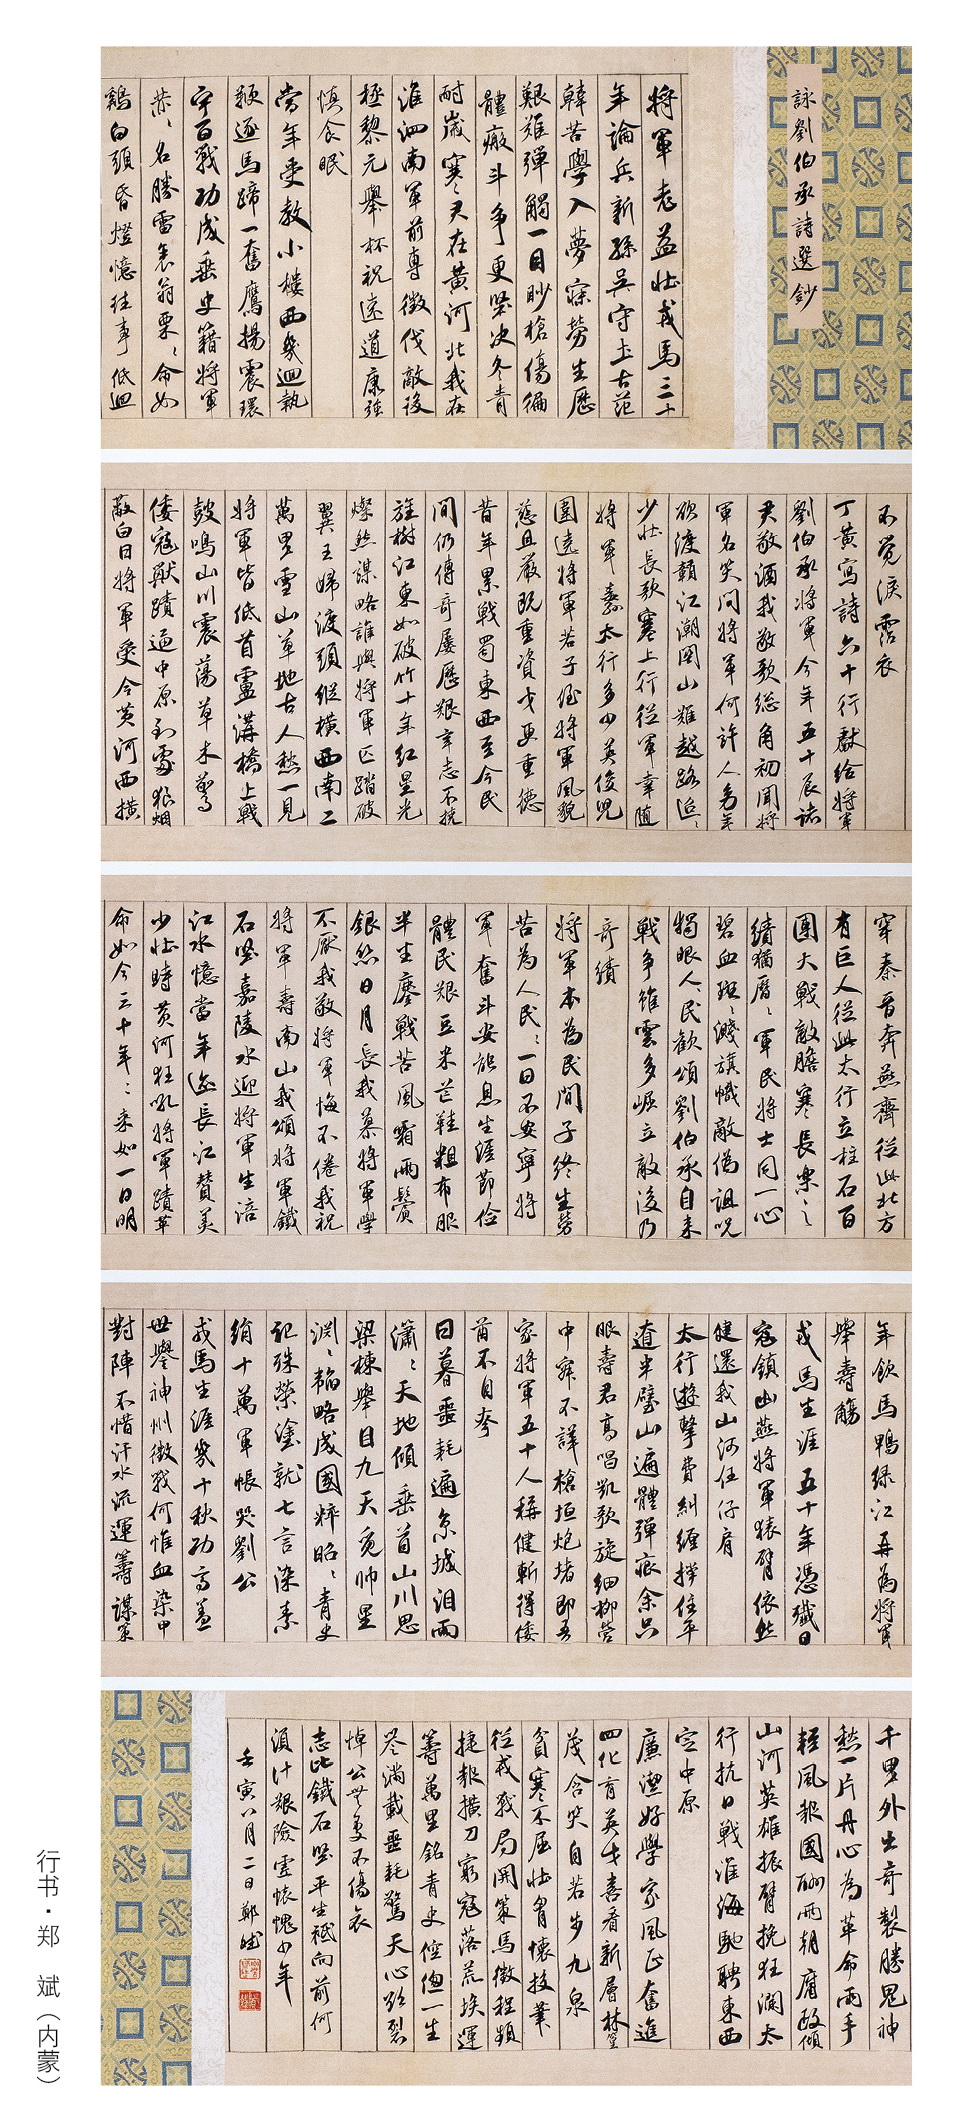 詠劉伯承詩選鈔
將軍老益壯戎馬三十
年論兵新孫吳守土古范
韓苦學入夢寐勞生歷
艱難彈觸一目眇槍傷徧
體瘢斗爭更堅決冬青
耐歲寒〻君在黄河北我在
淮泗南軍前專徵伐敵後
拯黎元舉杯祝遠道康強
慎食眠
當年受教小樓西幾迴執
鞭逐馬蹄一奮鷹揚震環
宇百戰功成垂史籍將軍
恭〻名勝雷表翁栗〻命如
鷄白頭昏燈憶往事低迴
不覺淚霑衣
丁黄寫詩六十行獻給將軍
劉伯承將軍今年五十辰諸
君敬酒我敬歌總角初聞將
軍名笑問將軍何許人多年
欲渡贛江潮関山難越路迢〻
少壯長歌塞上行從軍幸隨
將軍麾太行多少英俊児
圍遶將軍若子侄將軍風貌
慈且嚴既重資才更重德
昔年累戰蜀東西至今民
間仍傳奇屢歷艱辛志不撓
旌樹江東如破竹十年紅星光
燦然謀略誰與將軍匹踏破
翼王婦渡頭縱橫西南二
萬里雪山草地古人愁一見
將軍皆低首盧溝橋上戰
鼓鳴山川震蕩草木驚
倭寇獸蹟逼中原到處狼烟
蔽白日將軍受令黄河西橫
穿秦晉奔燕齊從此北方
有巨人從此太行立柱石百
團大戰敵膽寒長樂之
績猶曆〻軍民將士同一心
碧血斑〻濺旗幟敵偽詛咒
獨眼人人民歡頌劉伯承自來
戰爭雖雲多崛立敵後乃
奇績
將軍本為民間子終生勞
苦為人民〻一日不安寧將
軍奮斗安能息生涯節儉
體民艱豆米芒鞋粗布服
半生鏖戰苦風霜兩鬢
銀然日月長我慕將軍學
不厭我敬將軍悔不倦我祝
將軍壽南山我頌將軍鐵
石堅嘉陵水迎將軍生涪
江水憶當年游長江贊美
少壯時黄河狂吼將軍蹟革
命如今三十年〻来如一日明
年飲馬鴨绿江再為將軍
舉壽觴
戎馬生涯五十年憑殲日
寇鎮幽燕將軍猿臂依然
健還我山河任仔肩
太行遊擊費糾纏撐住平
遼半壁山遍體彈痕余只
眼壽君高唱凱歌旋細柳營
中寐不譁槍垣炮堵即吾
家將軍五十人稱健斬得倭
首不自夸
日暮噩耗遍京城泪雨
瀟〻天地傾垂首山川思
梁棟舉目九天覓帥星
淵〻韜略成國粹昭〻青史
記殊榮塗就七言染素
綃十萬軍帳哭劉公
戎馬生涯幾十秋功高蓋
世譽神州徵戰何惟血染甲
對陣不惜汗水流運籌謀策
千里外出奇製勝鬼神
愁一片丹心為革命兩手
輕風報國酬兩朝腐敗傾
山河英雄振臂挽狂瀾太
行抗日戰淮海馳騁東西
定中原
廉潔好學家風正奮進
四化育英才喜看新層林
茂含笑自若步九泉
貧寒不屈壯胃懷投筆
從戎我局開策馬徵程頻
捷報橫刀窮寇落荒埃運
籌萬里銘青史倥傯一生
卷滿載噩耗驚天心欲裂
悼公無处不傷哀
志比鐵石堅平生祗向前何
須計艱險雲帳愧少年
壬寅八月二日鄭斌
行书·郑 斌（内蒙）